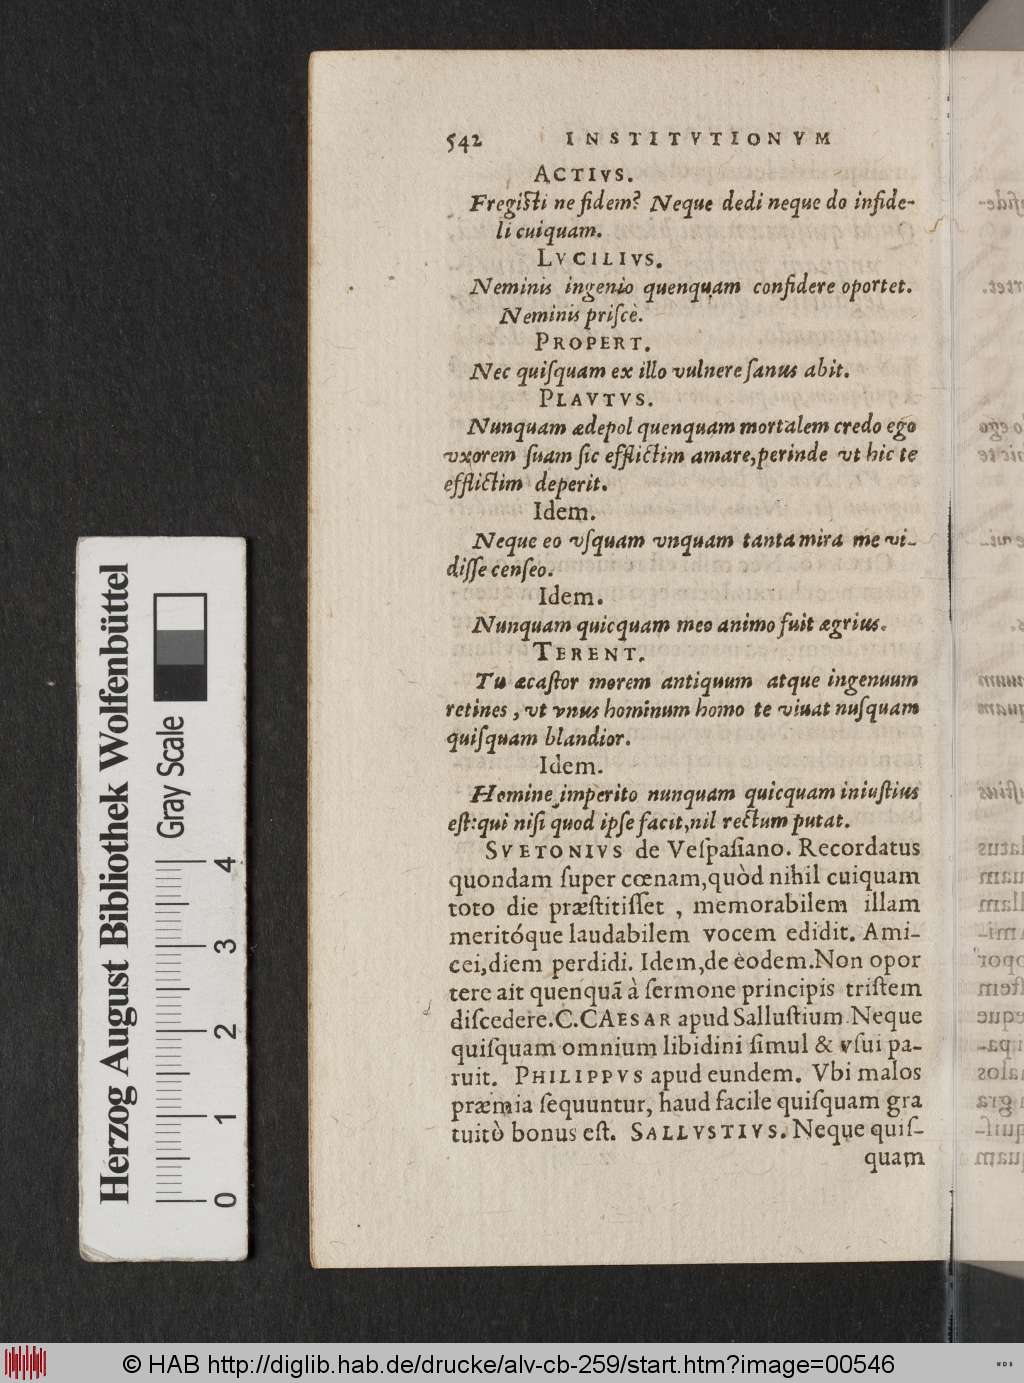 542 INSTITVTIONVM
ACTIVS.
Fregiſti ne fidem? Neque dedi neque do infide-
li cuiquam.
LVCILIVS.
Neminis ingenio quenquam confidere oportet.
Neminis priſcè.
PROPERT.
Nec quiſquam ex illo vulnere ſanus abit.
PLAVTVS.
Nunquam ædepol quenquam mortalem credo ego
vxorem ſuam ſic efflictim amare, perinde vt hic te
efflictim deperit.
Idem.
Neque eo vſquam vnquam tanta mira me vi-
diſſe cenſeo.
Idem.
Nunquam quicquam meo animo fuit ægrius.
TERENT.
Tu æcaſtor morem antiquum atque ingenuum
retines, vt vnus hominum homo te viuat nuſquam
quiſquam blandior.
Idem.
Homine imperito nunquam quicquam iniuſtius
eſt: qui niſi quod ipſe facit, nil rectum putat.
SVETONIVS de Veſpaſiano. Recordatus
quondam ſuper cœnam, quòd nihil cuiquam
toto die præſtitiſſet, memorabilem illam
meritóque laudabilem vocem edidit. Ami-
cei, diem perdidi. Idem, de eodem. Non opor
tere ait quenquã à ſermone principis triſtem
diſcedere. C. CAESAR apud Salluſtium. Neque
quiſquam omnium libidini ſimul & vſui pa-
ruit. PHILIPPVS apud eundem. Vbi malos
præmia ſequuntur, haud facile quiſquam gra
tuitò bonus eſt. SALLVSTIVS. Neque quiſ-
quam
Herzog August Bibliothek Wolfenbüttel
Gray Scale
0 1 2 3 4
© HAB http://diglib.hab.de/drucke/alv-cb-259/start.htm?image=00546